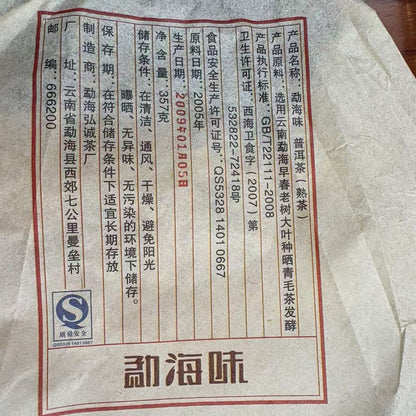 产品名称：勐海味 普洱茶（熟茶）
产品原料：选用云南勐海早春老树大叶种晒青毛茶发酵
产品执行标准：GB/T22111-2008
卫生许可证：西海卫食字（2007）第
532822-72418号
食品安全生产许可证号：QS5328 1401 0667
原料日期：2005年
生产日期：2009年01月05日
净含量：357克
储存条件：在清洁、通风、干燥、避免阳光
曝晒、无异味、无污染的环境下储存。
保存期：在符合储存条件下适宜长期存放
制造商：勐海弘诚茶厂
厂址：云南省勐海县西郊七公里曼垒村
邮编：666200
质量安全
QS5328 1401 0667
勐海味